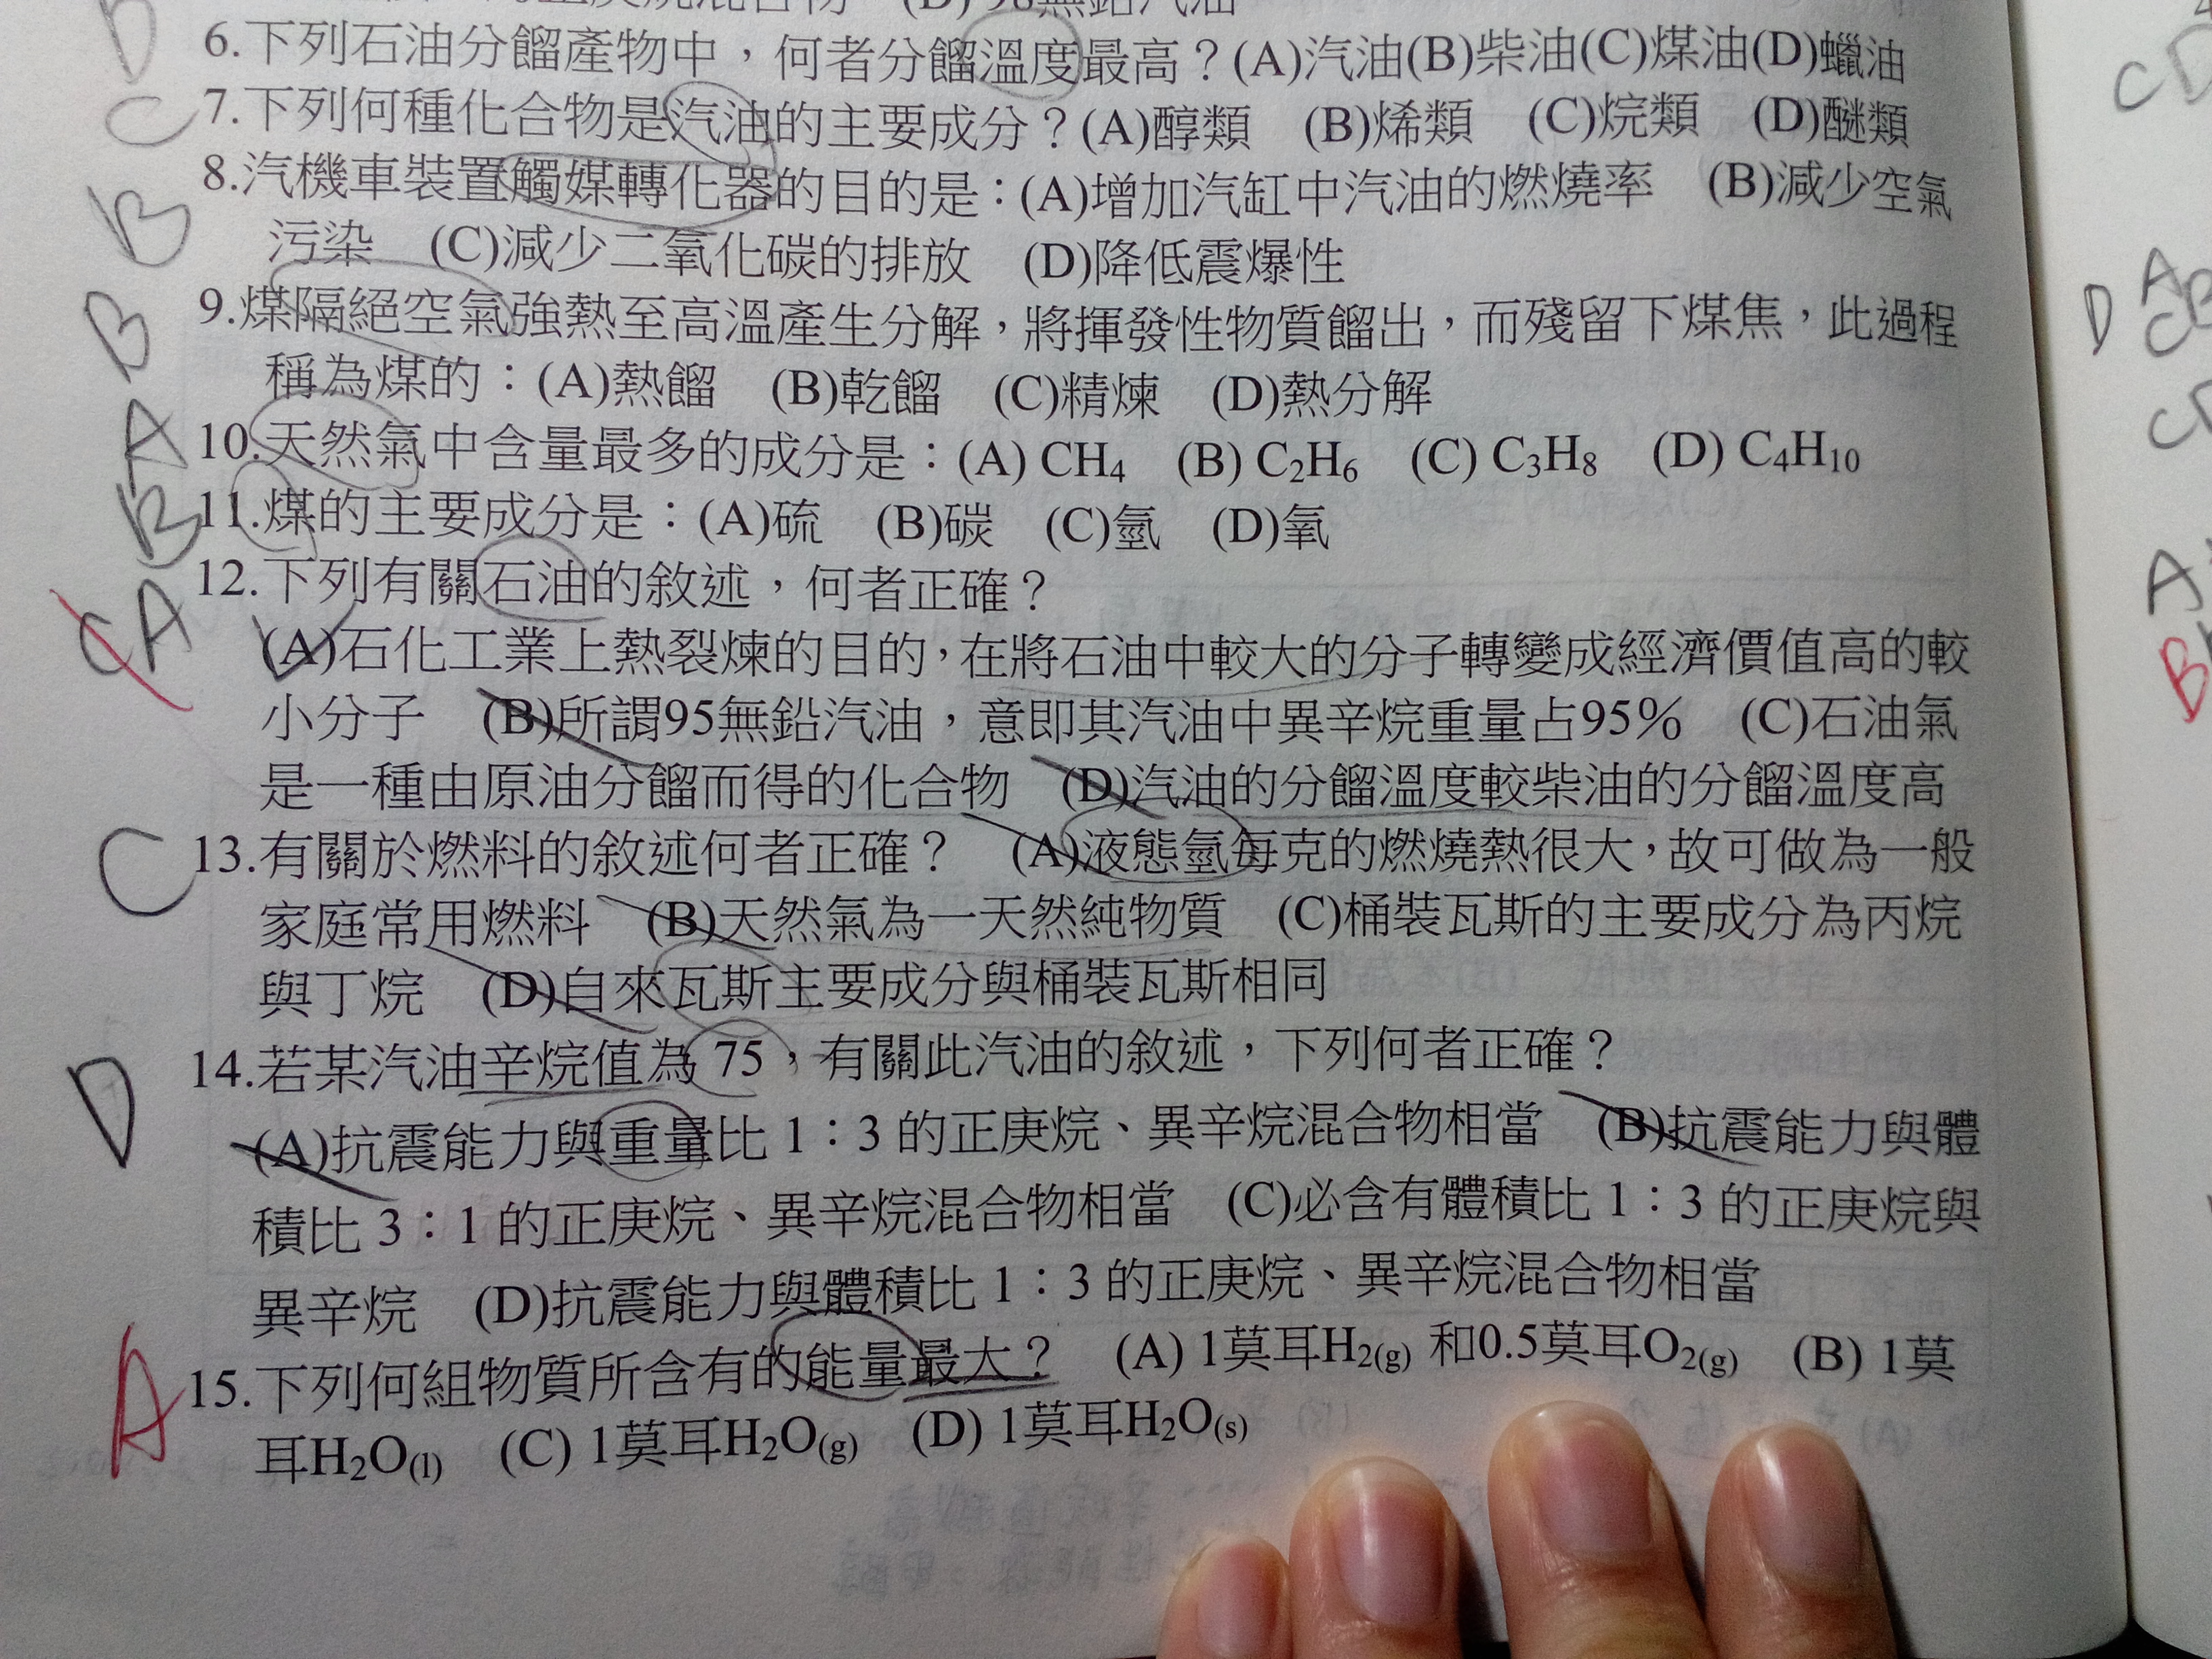 (D) 98無鉛汽油
D 6.下列石油分餾產物中，何者分餾溫度最高？(A)汽油(B)柴油(C)煤油(D)蠟油
C 7.下列何種化合物是汽油的主要成分？(A)醇類 (B)烯類 (C)烷類 (D)醚類
B 8.汽機車裝置觸媒轉化器的目的是：(A)增加汽缸中汽油的燃燒率 (B)減少空氣
污染 (C)減少二氧化碳的排放 (D)降低震爆性
B 9.煤隔絕空氣強熱至高溫產生分解，將揮發性物質餾出，而殘留下煤焦，此過程
稱為煤的：(A)熱餾 (B)乾餾 (C)精煉 (D)熱分解
A 10.天然氣中含量最多的成分是：(A) CH4 (B) C2H6 (C) C3H8 (D) C4H10
B 11.煤的主要成分是：(A)硫 (B)碳 (C)氫 (D)氧
C A 12.下列有關石油的敘述，何者正確？
(A)石化工業上熱裂煉的目的，在將石油中較大的分子轉變成經濟價值高的較
小分子 (B)所謂95無鉛汽油，意即其汽油中異辛烷重量占95% (C)石油氣
是一種由原油分餾而得的化合物 (D)汽油的分餾溫度較柴油的分餾溫度高
C 13.有關於燃料的敘述何者正確？ (A)液態氫每克的燃燒熱很大，故可做為一般
家庭常用燃料 (B)天然氣為一天然純物質 (C)桶裝瓦斯的主要成分為丙烷
與丁烷 (D)自來瓦斯主要成分與桶裝瓦斯相同
D 14.若某汽油辛烷值為 75，有關此汽油的敘述，下列何者正確？
(A)抗震能力與重量比 1：3 的正庚烷、異辛烷混合物相當 (B)抗震能力與體
積比 3：1 的正庚烷、異辛烷混合物相當 (C)必含有體積比 1：3 的正庚烷與
異辛烷 (D)抗震能力與體積比 1：3 的正庚烷、異辛烷混合物相當
A 15.下列何組物質所含有的能量最大？ (A) 1莫耳H2(g) 和0.5莫耳O2(g) (B) 1莫
耳H2O(l) (C) 1莫耳H2O(g) (D) 1莫耳H2O(s)